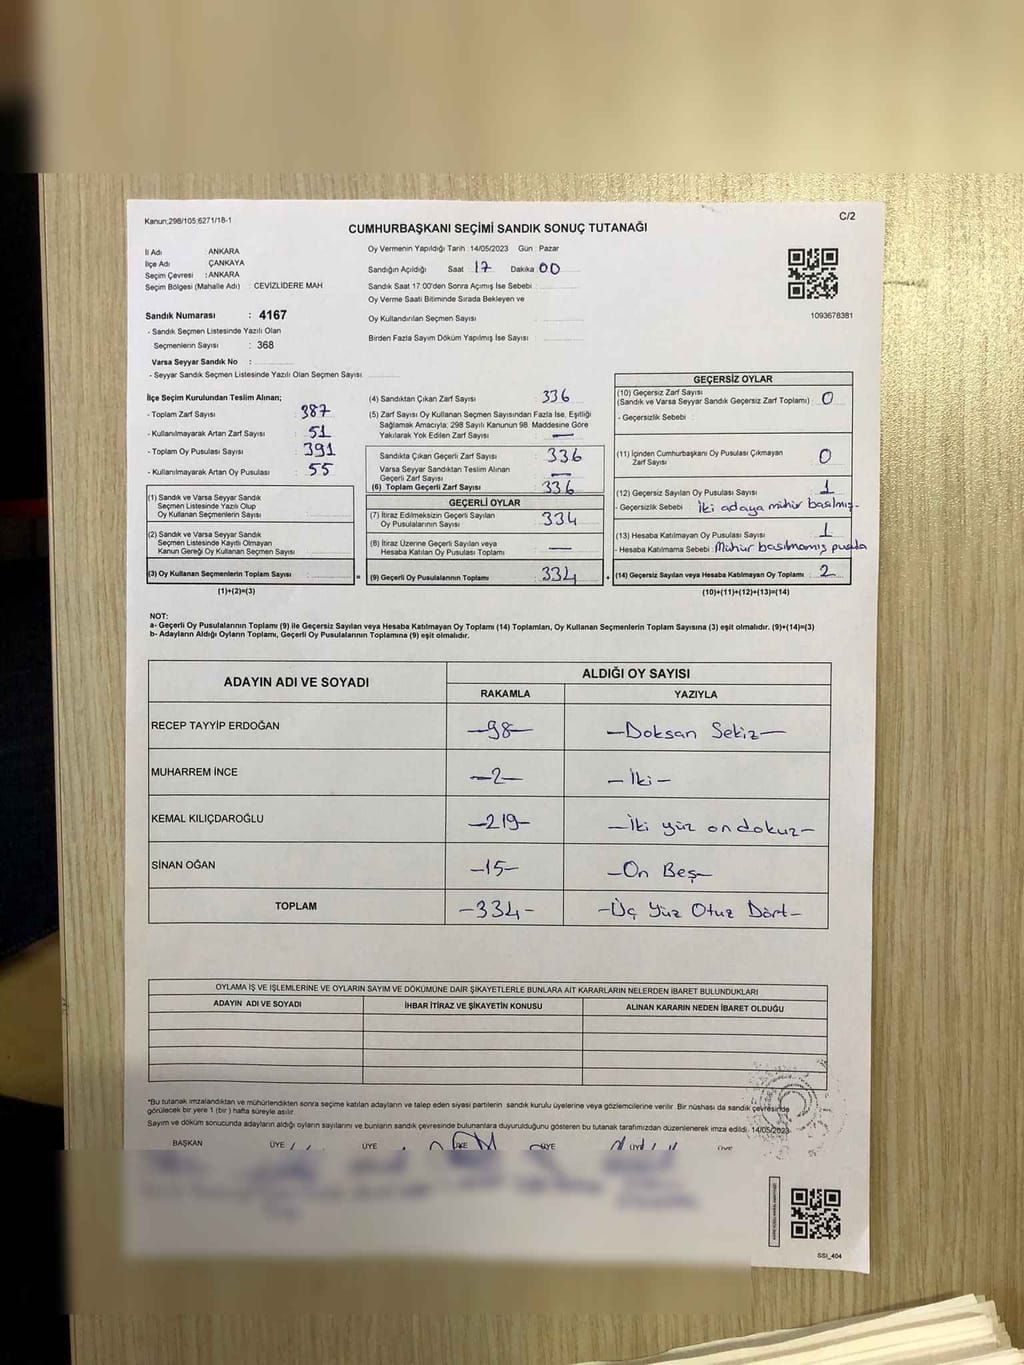 Kanun;298/105;6271/18-1
C/2
CUMHURBAŞKANI SEÇİMİ SANDIK SONUÇ TUTANAĞI
İl Adı : ANKARA
İlçe Adı : ÇANKAYA
Seçim Çevresi : ANKARA
Seçim Bölgesi (Mahalle Adı) : CEVİZLİDERE MAH.
Oy Vermenin Yapıldığı Tarih :14/05/2023 Gün : Pazar
Sandığın Açıldığı Saat 17 Dakika 00
Sandık Saat 17:00'den Sonra Açımış İse Sebebi :
Oy Verme Saati Bitiminde Sırada Bekleyen ve
Oy Kullandırılan Seçmen Sayısı :
Birden Fazla Sayım Döküm Yapılmış İse Sayısı :
1093678381
Sandık Numarası : 4167
- Sandık Seçmen Listesinde Yazılı Olan
Seçmenlerin Sayısı : 368
Varsa Seyyar Sandık No :
- Seyyar Sandık Seçmen Listesinde Yazılı Olan Seçmen Sayısı:
İlçe Seçim Kurulundan Teslim Alınan;
- Toplam Zarf Sayısı : 387
- Kullanılmayarak Artan Zarf Sayısı : 51
- Toplam Oy Pusulası Sayısı : 391
- Kullanılmayarak Artan Oy Pusulası : 55
(1) Sandık ve Varsa Seyyar Sandık
Seçmen Listesinde Yazılı Olup
Oy Kullanan Seçmenlerin Sayısı :
(2) Sandık ve Varsa Seyyar Sandık
Seçmen Listesinde Kayıtlı Olmayan
Kanun Gereği Oy Kullanan Seçmen Sayısı :
(3) Oy Kullanan Seçmenlerin Toplam Sayısı :
(1)+(2)=(3)
(4) Sandıktan Çıkan Zarf Sayısı : 336
(5) Zarf Sayısı Oy Kullanan Seçmen Sayısından Fazla İse, Eşitliği
Sağlamak Amacıyla; 298 Sayılı Kanunun 98. Maddesine Göre
Yakılarak Yok Edilen Zarf Sayısı : —
Sandıkta Çıkan Geçerli Zarf Sayısı : 336
Varsa Seyyar Sandıktan Teslim Alınan
Geçerli Zarf Sayısı : —
(6) Toplam Geçerli Zarf Sayısı : 336
GEÇERLİ OYLAR
(7) İtiraz Edilmeksizin Geçerli Sayılan
Oy Pusulalarının Sayısı : 334
(8) İtiraz Üzerine Geçerli Sayılan veya
Hesaba Katılan Oy Pusulası Toplamı : —
(9) Geçerli Oy Pusulalarının Toplamı : 334
GEÇERSİZ OYLAR
(10) Geçersiz Zarf Sayısı
(Sandık ve Varsa Seyyar Sandık Geçersiz Zarf Toplamı) : 0
- Geçersizlik Sebebi :
(11) İçinden Cumhurbaşkanı Oy Pusulası Çıkmayan
Zarf Sayısı : 0
(12) Geçersiz Sayılan Oy Pusulası Sayısı : 1
- Geçersizlik Sebebi : İki adaya mühür basılmış-
(13) Hesaba Katılmayan Oy Pusulası Sayısı : 1
- Hesaba Katılmama Sebebi : Mühür basılmamış pusula
(14) Geçersiz Sayılan veya Hesaba Katılmayan Oy Toplamı : 2
(10)+(11)+(12)+(13)=(14)
NOT:
a- Geçerli Oy Pusulalarının Toplamı (9) ile Geçersiz Sayılan veya Hesaba Katılmayan Oy Toplamı (14) Toplamları, Oy Kullanan Seçmenlerin Toplam Sayısına (3) eşit olmalıdır. (9)+(14)=(3)
b- Adayların Aldığı Oyların Toplamı, Geçerli Oy Pusulalarının Toplamına (9) eşit olmalıdır.
ADAYIN ADI VE SOYADI
ALDIĞI OY SAYISI
RAKAMLA YAZIYLA
RECEP TAYYİP ERDOĞAN -98- -Doksan Sekiz-
MUHARREM İNCE -2- -İki-
KEMAL KILIÇDAROĞLU -219- -İki yüz ondokuz-
SİNAN OĞAN -15- -On Beş-
TOPLAM -334- -Üç Yüz Otuz Dört-
OYLAMA İŞ VE İŞLEMLERİNE VE OYLARIN SAYIM VE DÖKÜMÜNE DAİR ŞİKAYETLERLE BUNLARA AİT KARARLARIN NELERDEN İBARET BULUNDUKLARI
ADAYIN ADI VE SOYADI İHBAR İTİRAZ VE ŞİKAYETİN KONUSU ALINAN KARARIN NEDEN İBARET OLDUĞU
*Bu tutanak imzalandıktan ve mühürlendikten sonra seçime katılan adayların ve talep eden siyasi partilerin sandık kurulu üyelerine veya gözlemcilerine verilir. Bir nüshası da sandık çevresinde
görülecek bir yere 1 (bir ) hafta süreyle asılır.
Sayım ve döküm sonucunda adayların aldığı oyların sayılarını ve bunların sandık çevresinde bulunanlara duyurulduğunu gösteren bu tutanak tarafımızdan düzenlenerek imza edildi. 14/05/2023
BAŞKAN ÜYE ÜYE ÜYE ÜYE ÜYE ÜYE
SSI_404